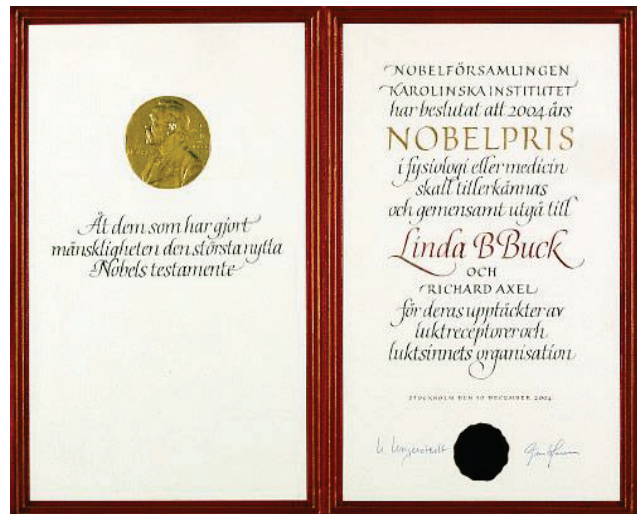 Åt dem som har gjort
mänskligheten den största nytta
Nobels testamente
NOBELFÖRSAMLINGEN
KAROLINSKA INSTITUTET
har beslutat att 2004 års
NOBELPRIS
i fysiologi eller medicin
skall tillerkännas
och gemensamt utgå till
Linda B Buck
OCH
RICHARD AXEL
för deras upptäckter av
luktreceptorer och
luktsinnets organisation
STOCKHOLM DEN 10 DECEMBER 2004
U Ungerstedt